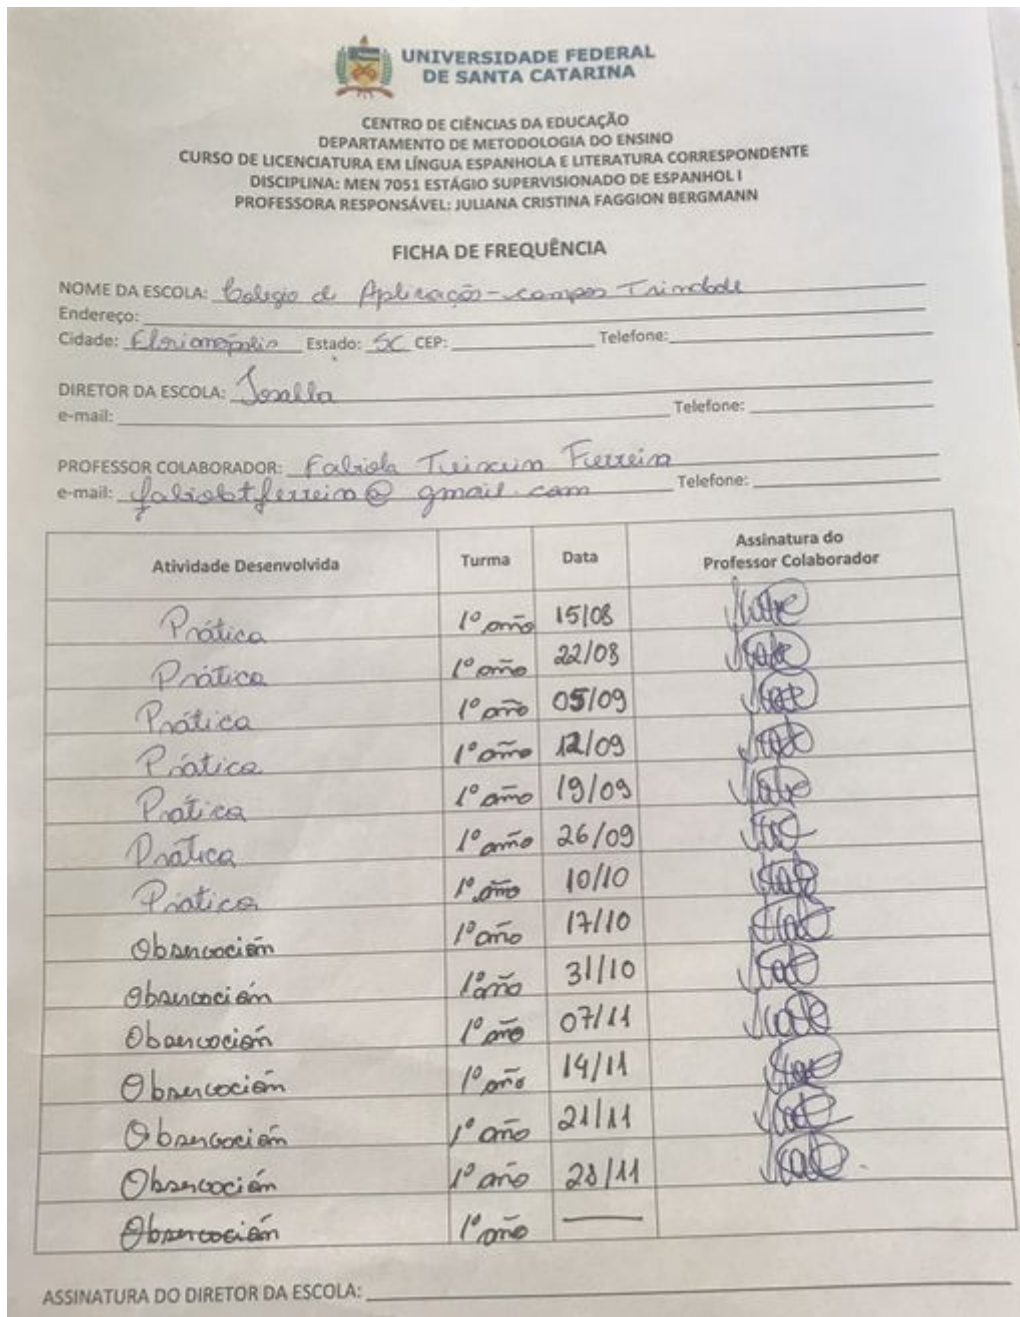 UNIVERSIDADE FEDERAL
DE SANTA CATARINA
CENTRO DE CIÊNCIAS DA EDUCAÇÃO
DEPARTAMENTO DE METODOLOGIA DO ENSINO
CURSO DE LICENCIATURA EM LÍNGUA ESPANHOLA E LITERATURA CORRESPONDENTE
DISCIPLINA: MEN 7051 ESTÁGIO SUPERVISIONADO DE ESPANHOL I
PROFESSORA RESPONSÁVEL: JULIANA CRISTINA FAGGION BERGMANN
FICHA DE FREQUÊNCIA
NOME DA ESCOLA: Colegio de Aplicação - campos Trindade
Endereço:
Cidade: Florianópolis Estado: SC CEP: Telefone:
DIRETOR DA ESCOLA: Josalba
e-mail: Telefone:
PROFESSOR COLABORADOR: Fabiola Teixeira Ferreira
e-mail: fabiolatferreira@gmail.com Telefone:
Atividade Desenvolvida Turma Data Assinatura do
Professor Colaborador
Prática 1º año 15/08
Prática 1º año 22/08
Prática 1º año 05/09
Prática 1º año 12/09
Prática 1º año 19/09
Prática 1º año 26/09
Prática 1º año 10/10
Observación 1º año 17/10
Observación 1º año 31/10
Observación 1º año 07/11
Observación 1º año 14/11
Observación 1º año 21/11
Observación 1º año 28/11
Observación 1º año
ASSINATURA DO DIRETOR DA ESCOLA: